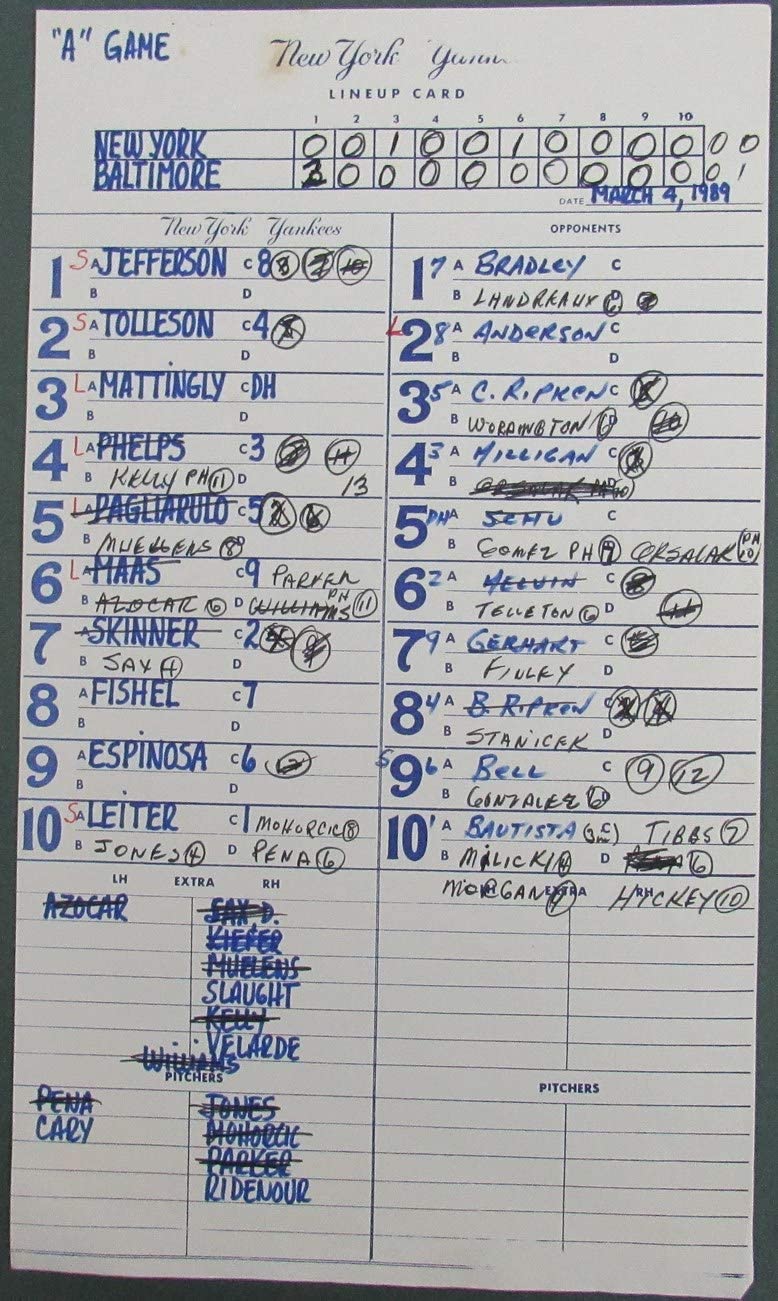 "A" GAME
New York
LINEUP CARD
1 2 3 4 5 6 7 8 9 10
NEW YORK 0 0 1 0 0 1 0 0 0 0 0 0
BALTIMORE 2 0 0 0 0 0 0 0 0 0 0 1
DATE MARCH 4, 1989
New York Yankees
1 S A JEFFERSON C 8 8
B D
2 S A TOLLESON C 4
B D
3 L A MATTINGLY C DH
B D
4 L A PHELPS C 3
B KELLY PH 11 D 13
5 L A PAGLIARULO C 5
B MUELLENS 8
6 L A MAAS C 9 PARKER
B AZOCAR 6 D WILLIAMS PH 11
7 A SKINNER C 2
B SAX 4 D
8 A FISHEL C 7
B D
9 A ESPINOSA C 6
B D
10 S A LEITER C 1 MOHORCIC 8
B JONES 4 D PENA 6
LH EXTRA RH
AZOCAR
SAX D.
KIEFER
MUELENS
SLAUGHT
KELLY
VELARDE
WILLIAMS
PITCHERS
PENA
CARY
JONES
MOHORCIC
PARKER
RIDENOUR
OPPONENTS
1 7 A BRADLEY C
B LANDREAUX D
L 2 8 A ANDERSON C
B D
3 5 A C. RIPKEN C
B WORTHINGTON 8
4 3 A MILLIGAN C
B
5 DH A SCHU C
B GOMEZ PH 9 ORSALAK PH 10
6 2 A MELVIN C
B TELLETON 6 D
7 9 A GERHART C
B FINLEY D
8 4 A B. RIPKEN C
B STANICEK D
S 9 6 A BELL C 9 12
B GONZALEZ 6
10 1 A BAUTISTA TIBBS 7
B MILICKI 4 D 6
MORGAN EXTRA RH HICKEY 10
PITCHERS